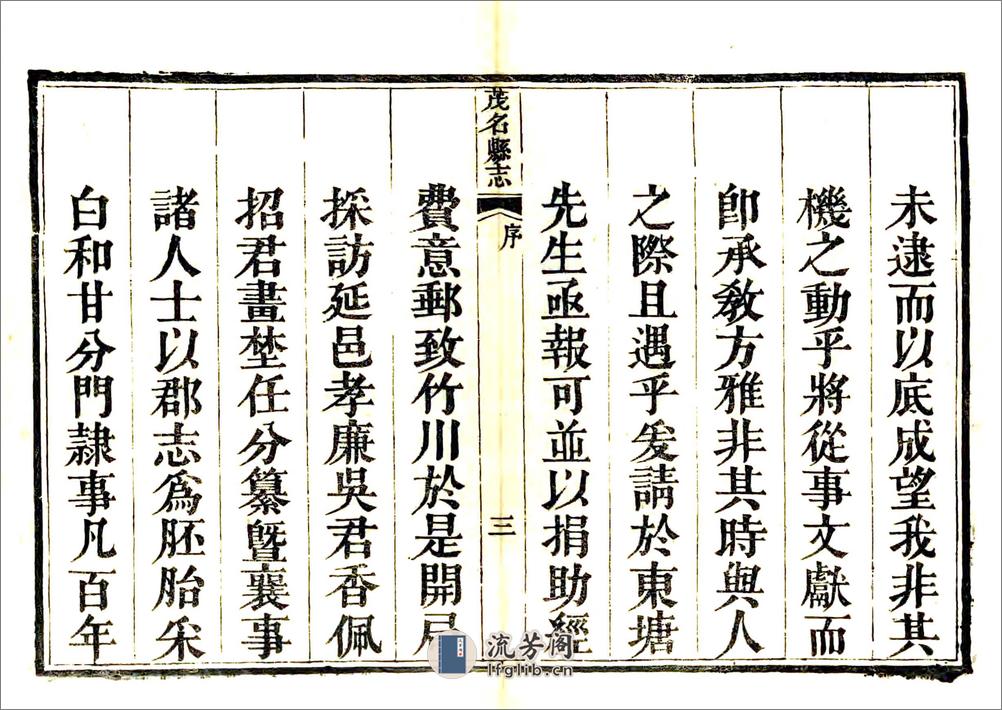 未逮而以底成望我非其
機之動乎將從事文獻而
卽承敎方雅非其時與人
之際且遇乎爰請於東塘
先生亟報可並以捐助經
茂名縣志
序
三
費意郵致竹川於是開局
採訪延邑孝廉吳君香佩
招君畫埜任分纂曁襄事
諸人士以郡志爲胚胎采
白和甘分門隷事凡百年
流芳阁
lfglib.cn